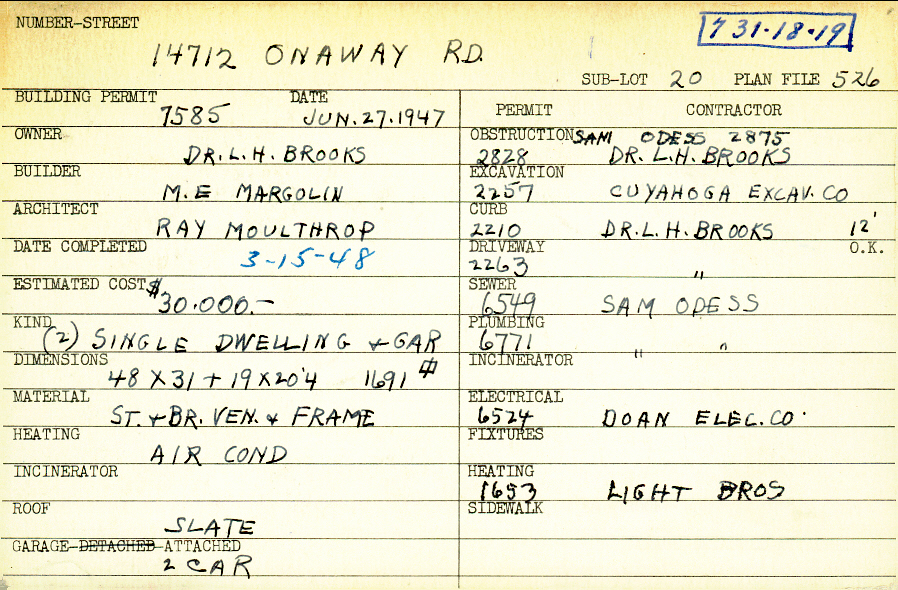 NUMBER-STREET
731-18-19
14712 ONAWAY RD.
SUB-LOT 20 PLAN FILE 526
BUILDING PERMIT DATE
7585 JUN.27.1947
OWNER
DR. L. H. BROOKS
BUILDER
M. E MARGOLIN
ARCHITECT
RAY MOULTHROP
DATE COMPLETED
3-15-48
ESTIMATED COST $
30.000.-
KIND
(2) SINGLE DWELLING + GAR
DIMENSIONS
48 X 31 + 19 X 20'4 1691 #
MATERIAL
ST. + BR. VEN. & FRAME
HEATING
AIR COND
INCINERATOR
ROOF
SLATE
GARAGE-DETACHED-ATTACHED
2 CAR
PERMIT CONTRACTOR
OBSTRUCTION SAM ODESS 2875
2828 DR. L.H. BROOKS
EXCAVATION
2257 CUYAHOGA EXCAV. CO
CURB
2210 DR. L. H. BROOKS 12'
DRIVEWAY O.K.
2263 "
SEWER
6549 SAM ODESS
PLUMBING
6771 " "
INCINERATOR
ELECTRICAL
6524 DOAN ELEC. CO.
FIXTURES
HEATING
1653 LIGHT BROS
SIDEWALK